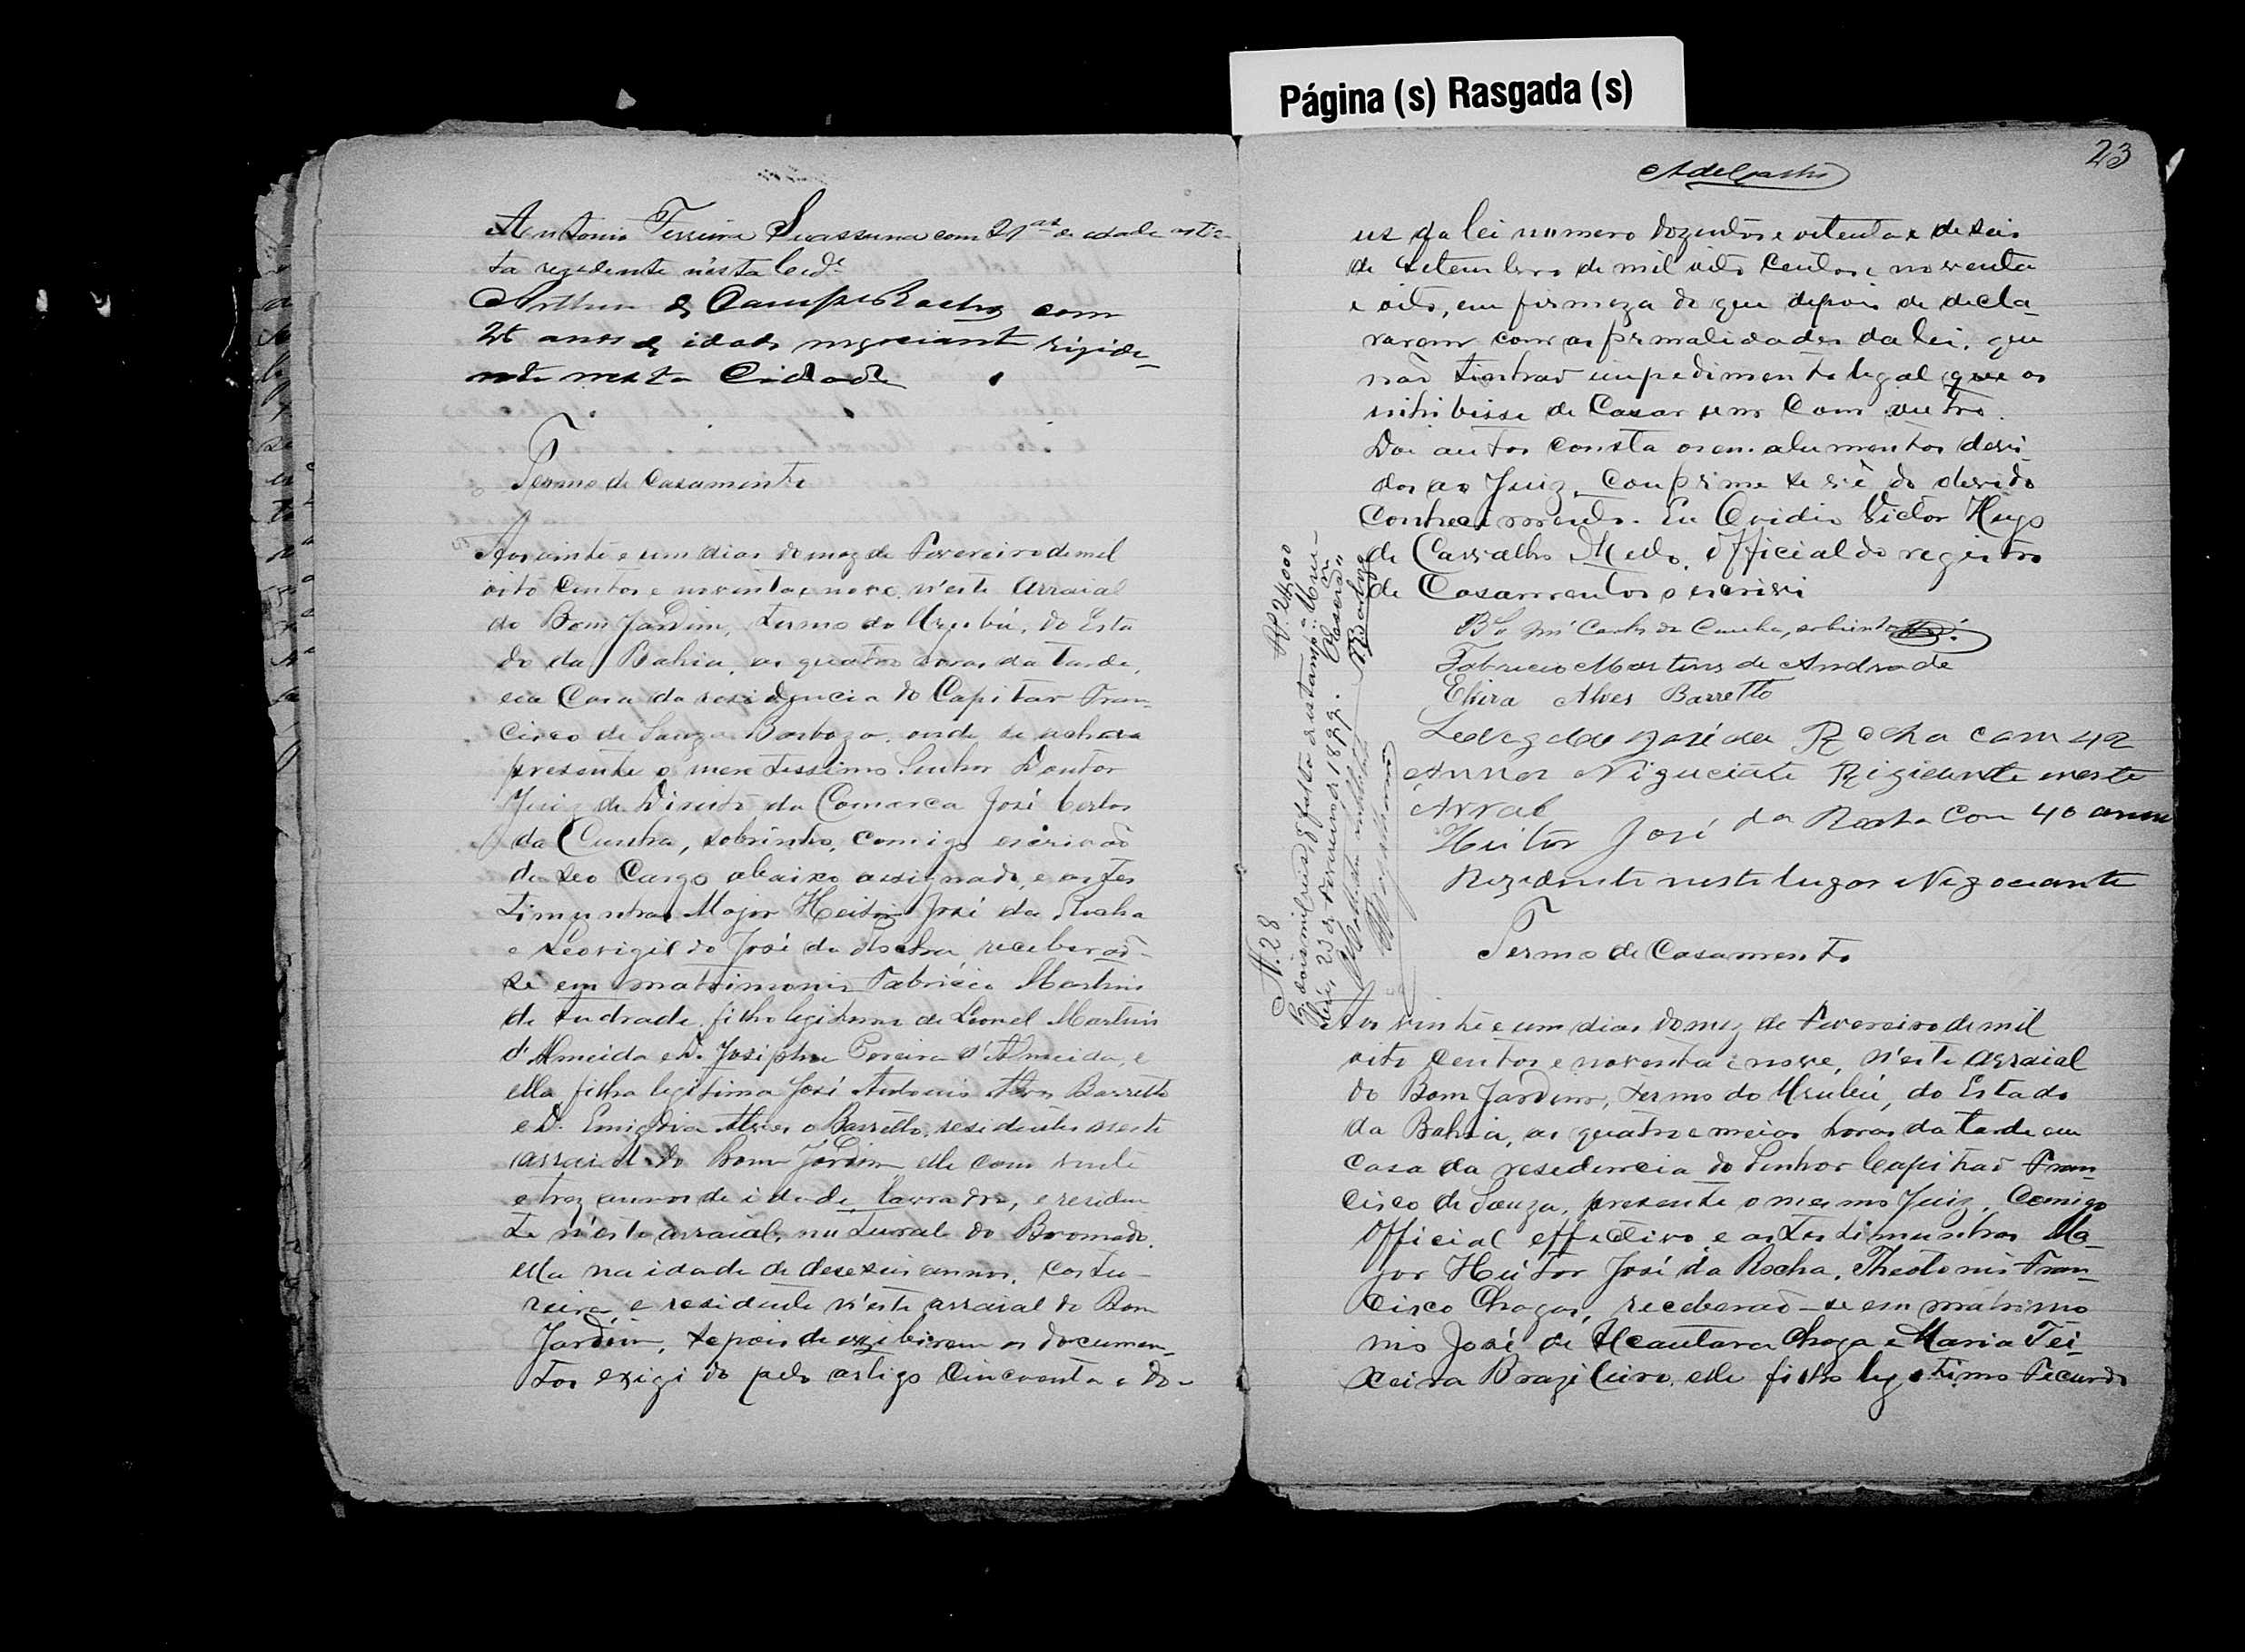 Página (s) Rasgada (s)
Antonio Ferreira Suassuna com 21 as de idade
ta rezedente n'esta Cide
Arthur de Campos Rocha com
anos de idade negociante rizide-
nte nesta Cidade
Termo de Casamento
Aos vinte e um dias do mez de Fevereiro de mil
oito centos e noventa e nove, n'este arraial
do Bom Jardim, termo do Urubú, do Esta
do da Bahia, as quatro oras da tarde,
em Casa da residencia do Capitão Fran-
cisco de Souza Barboza, onde se achava
presente o meretissimo Senhor Doutor
Juiz de Direito da Comarca José Carlos
da Cunha, sobrinho, comigo escrivaõ
de seo Cargo abaixo assignado, e as tes
timunhas Major Heitor José da Rocha
e Leovigildo José da Rocha, receberaõ-
se em matrimonio Fabricio Martins
de Andrade, filho legitimo de Leonel Martins
d'Almeida e D. Josipha Pereira d'Almeida, e
ella filha legitima José Antonio Alves Barretto
e D. Emigdia Alves Barretto, residentes neste
arraial do Bom Jardim, elle com vinte
e trez annos de idade, lavrador, e residen
te n'este arraial, natural do Bromado.
ella na idade de deseseis annos, costu-
reira e residente n'este arraial do Bom
Jardim, depois de exzibirem os documen-
tos exigido pelo artigo Cincoenta e do-
23
Adelcastro
us da lei numero dozentos e oitenta e de seis
de Setembro de mil oito centos e noventa
e oito, em firmeza do que depois de decla-
rarem com as formalidades da lei, que
naõ tinhaõ impedimento legal que os
inhibisse de Casar um Com outro.
Dos autos consta os emolumentos devi-
dos ao Juiz, Conforme se vê do devido
Conhecimento. Eu Ovidio Victor Hugo
de Carvalho Mello, Official do registro
de Casamentos o escrivi
Bel José Carlos da Cunha, sobrinho
Fabricio Martins de Andrade
Elvira Alves Barretto
José da Rocha com 42
Annos Niguciate Rizidente neste
Arral
Heitor José da Rocha Com 40 annos
Rezidente neste lugar Negociante
N. 28
R 2#000
Termo de Casamento
Aos vinte e um dias do mez de Fevereiro de mil
oito Centos e noventa e nove, n'este arraial
do Bom Jardim, termo do Urubú, do Estado
da Bahia, as quatro e meias horas da tarde em
Casa da residencia do Senhor Capitaõ Fran-
cisco de Souza, presente o mesmo Juiz, Comigo
Official effectivo e as testimunhas Ma-
jor Heitor José da Rocha, Theotonio Fran-
cisco Chagas, receberaõ-se em matrimo
nio José de Alcantara Chaga e Maria Tei-
xeira Brazileiro, elle filho legitimo Secundo